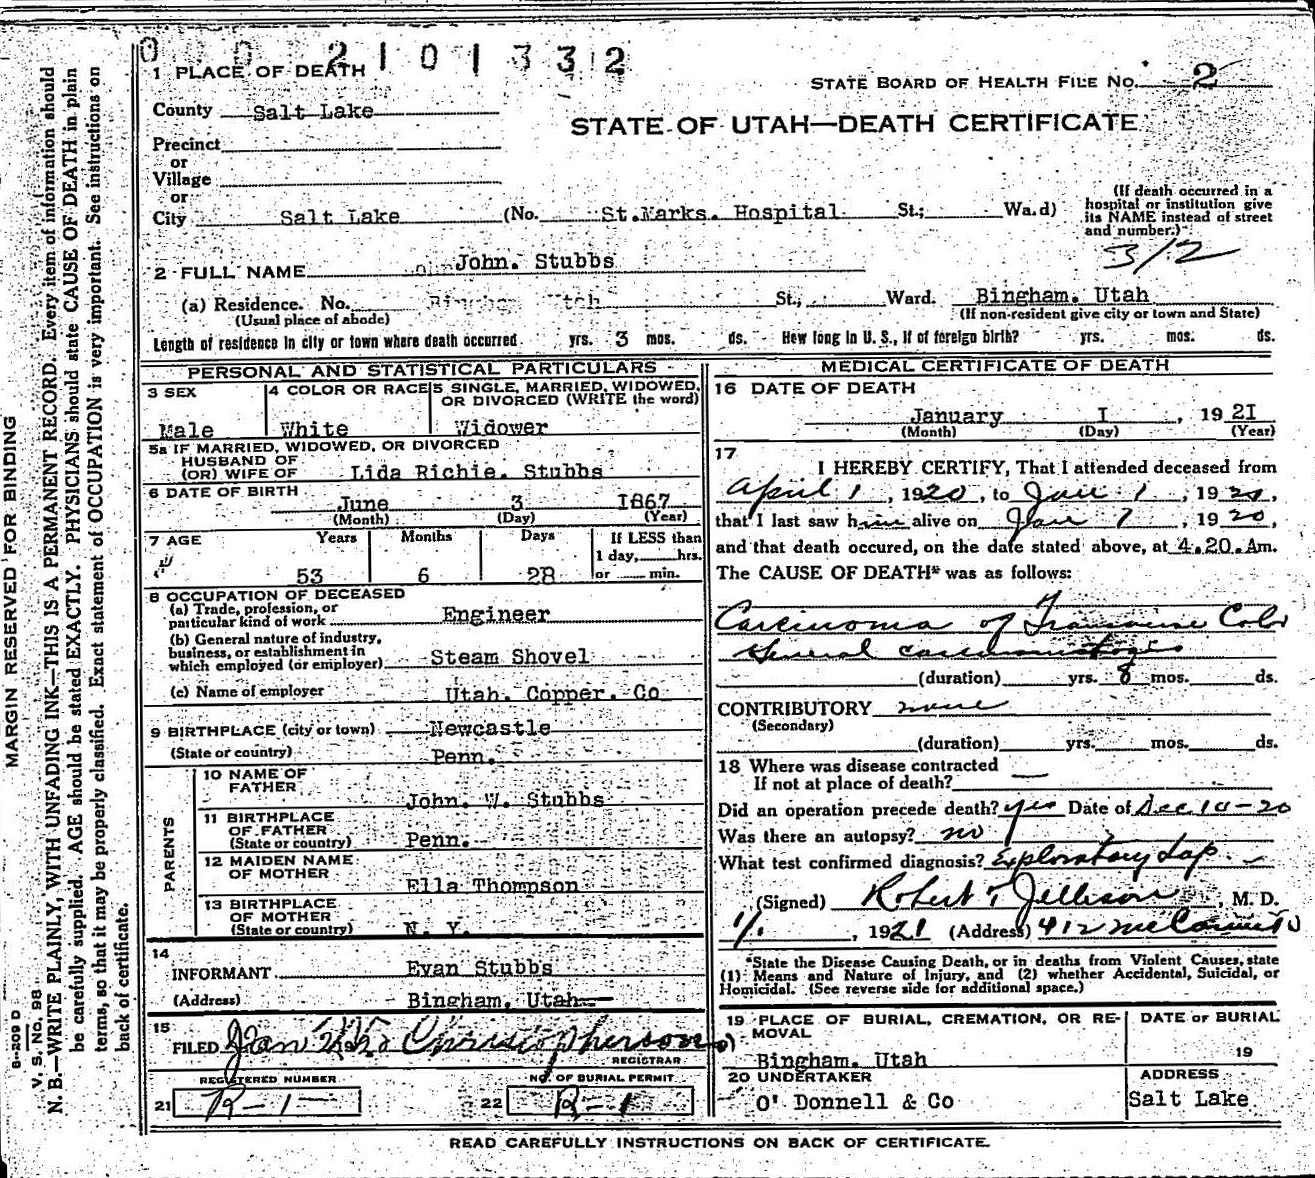 0 0 2101332
1 PLACE OF DEATH
STATE BOARD OF HEALTH FILE No. 2
County Salt Lake
STATE OF UTAH—DEATH CERTIFICATE
Precinct
or
Village
or
City Salt Lake (No. St.Marks. Hospital St.; Wa.d)
(If death occurred in a
hospital or institution give
its NAME instead of street
and number.)
312
2 FULL NAME John. Stubbs
(a) Residence. No. Bingham Utah St., Ward. Bingham. Utah
(Usual place of abode) (If non-resident give city or town and State)
Length of residence in city or town where death occurred yrs. 3 mos. ds. How long in U. S., if of foreign birth? yrs. mos. ds.
PERSONAL AND STATISTICAL PARTICULARS
3 SEX
Male
4 COLOR OR RACE
White
5 SINGLE, MARRIED, WIDOWED,
OR DIVORCED (WRITE the word)
Widower
5a IF MARRIED, WIDOWED, OR DIVORCED
HUSBAND OF
(OR) WIFE OF Lida Richie. Stubbs
6 DATE OF BIRTH
June 3 I867
(Month) (Day) (Year)
7 AGE Years Months Days If LESS than
1 day, hrs.
53 6 28 or min.
8 OCCUPATION OF DECEASED
(a) Trade, profession, or
particular kind of work Engineer
(b) General nature of industry,
business, or establishment in
which employed (or employer) Steam Shovel
(c) Name of employer Utah. Copper. Co
9 BIRTHPLACE (city or town) Newcastle
(State or country) Penn.
PARENTS
10 NAME OF
FATHER
John. W. Stubbs
11 BIRTHPLACE
OF FATHER
(State or country) Penn.
12 MAIDEN NAME
OF MOTHER
Ella Thompson
13 BIRTHPLACE
OF MOTHER
(State or country) N. Y.
14
INFORMANT Evan Stubbs
(Address) Bingham, Utah
15
FILED Jan Christopherson
REGISTRAR
REGISTERED NUMBER
21 R-1
NO. OF BURIAL PERMIT
22 R-1
MEDICAL CERTIFICATE OF DEATH
16 DATE OF DEATH
January I , 19 2I
(Month) (Day) (Year)
17
I HEREBY CERTIFY, That I attended deceased from
April 1, 1920, to Jan 1, 19
that I last saw him alive on Jan 1, 1920,
and that death occured, on the date stated above, at 4.20.Am.
The CAUSE OF DEATH* was as follows:
Carcinoma of Transverse Colon
General carcinomatosis
(duration) yrs. 8 mos. ds.
CONTRIBUTORY none
(Secondary)
(duration) yrs. mos. ds.
18 Where was disease contracted
If not at place of death?
Did an operation precede death? yes Date of Dec 14-20
Was there an autopsy? no
What test confirmed diagnosis? Exploratory Lap.
(Signed) Robert T Jellison, M. D.
1/1, 1921 (Address) 412 McCornick
*State the Disease Causing Death, or in deaths from Violent Causes, state
(1) Means and Nature of Injury, and (2) whether Accidental, Suicidal, or
Homicidal. (See reverse side for additional space.)
19 PLACE OF BURIAL, CREMATION, OR RE-
MOVAL
Bingham. Utah
DATE OF BURIAL
19
20 UNDERTAKER
O' Donnell & Co
ADDRESS
Salt Lake
READ CAREFULLY INSTRUCTIONS ON BACK OF CERTIFICATE.
MARGIN RESERVED FOR BINDING
S-209 D
V. S. No. 98
N. B.—WRITE PLAINLY, WITH UNFADING INK—THIS IS A PERMANENT RECORD. Every item of information should
be carefully supplied. AGE should be stated EXACTLY. PHYSICIANS should state CAUSE OF DEATH in plain
terms, so that it may be properly classified. Exact statement of OCCUPATION is very important. See instructions on
back of certificate.